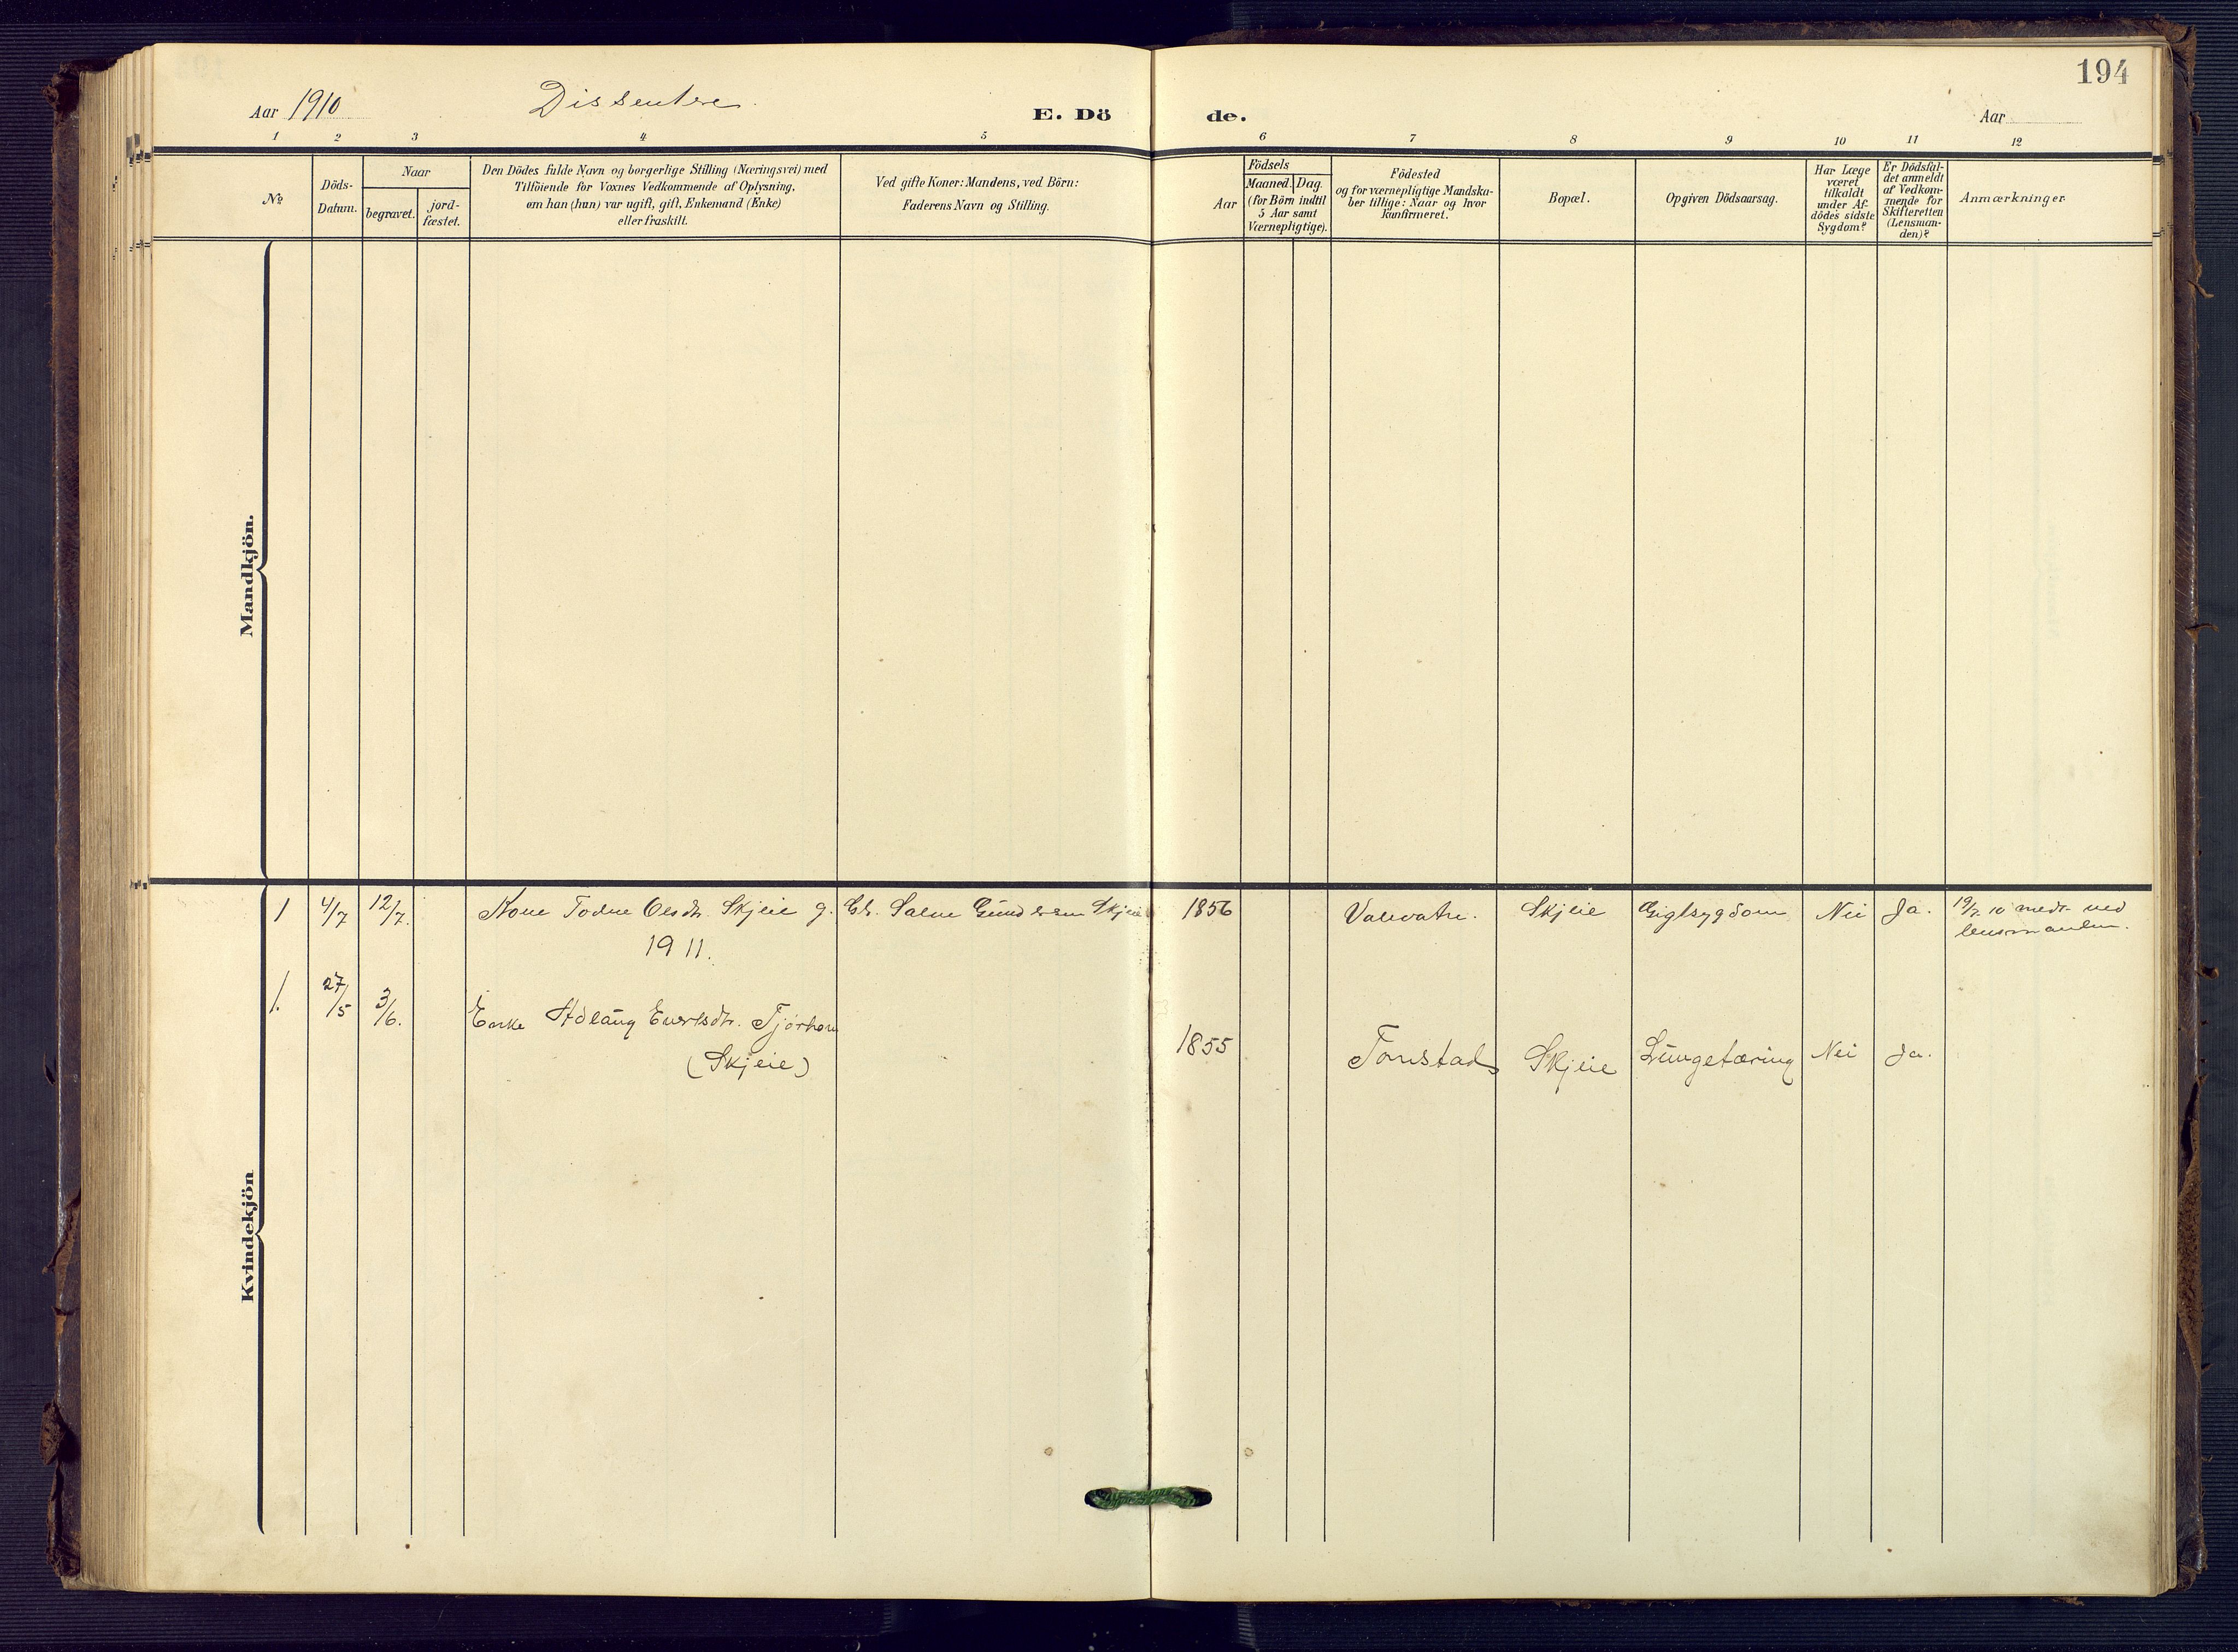 194
Aar 1910
Dissentere
E. Dö
de.
Aar
1 2 3 4 5 6 7 8 9 10 11 12
№
Döds-
Datum.
Naar
begravet.
jord-
fæstet.
Den Dödes fulde Navn og borgerlige Stilling (Næringsvei) med
Tilföiende for Voxnes Vedkommende af Oplysning,
om han (hun) var ugift, gift, Enkemand (Enke)
eller fraskilt.
Ved gifte Koner: Mandens, ved Börn:
Faderens Navn og Stilling.
Födsels
Aar
Maaned. Dag.
(for Börn indtil
5 Aar samt
Værnepligtige).
Födested
og for værnepligtige Mandska-
ber tillige: Naar og hvor
konfirmeret.
Bopæl.
Opgiven Dödsaarsag.
Har Læge
været
tilkaldt
under Af-
dödes sidste
Sygdom?
Er Dödsfal-
det anmeldt
af Vedkom-
mende for
Skifteretten
(Lensman-
den)?
Anmærkninger.
Mandkjön.
Kvindekjön
1 4/7 12/7. Kone Todne Olsdtr. Skjeie g. Salve Gundersen Skjeie 1856 Valevatn. Skjeie Gigtsygdom Nei Ja. 19/7. 10 medt. ved
lensmanden.
1911.
1. 27/5 3/6. Enke Ådlaug Evertsdtr. Tjørhom
(Skjeie)
1855 Tonstad Skjeie Lungetæring Nei Ja.